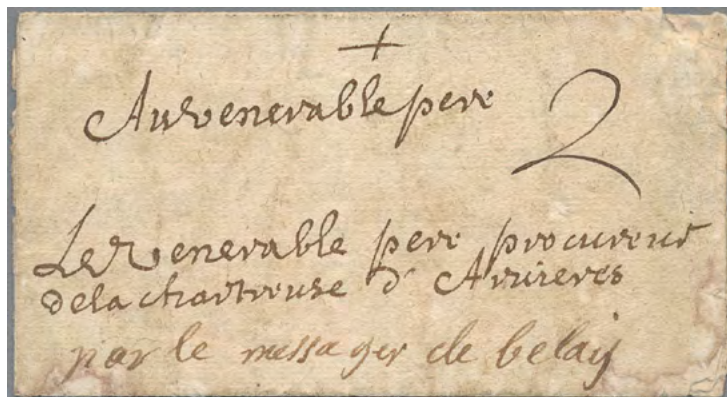 +
Au venerable pere 2
Le Venerable pere procureur
de la chartreuse d'Arvieres
par le messager de belay